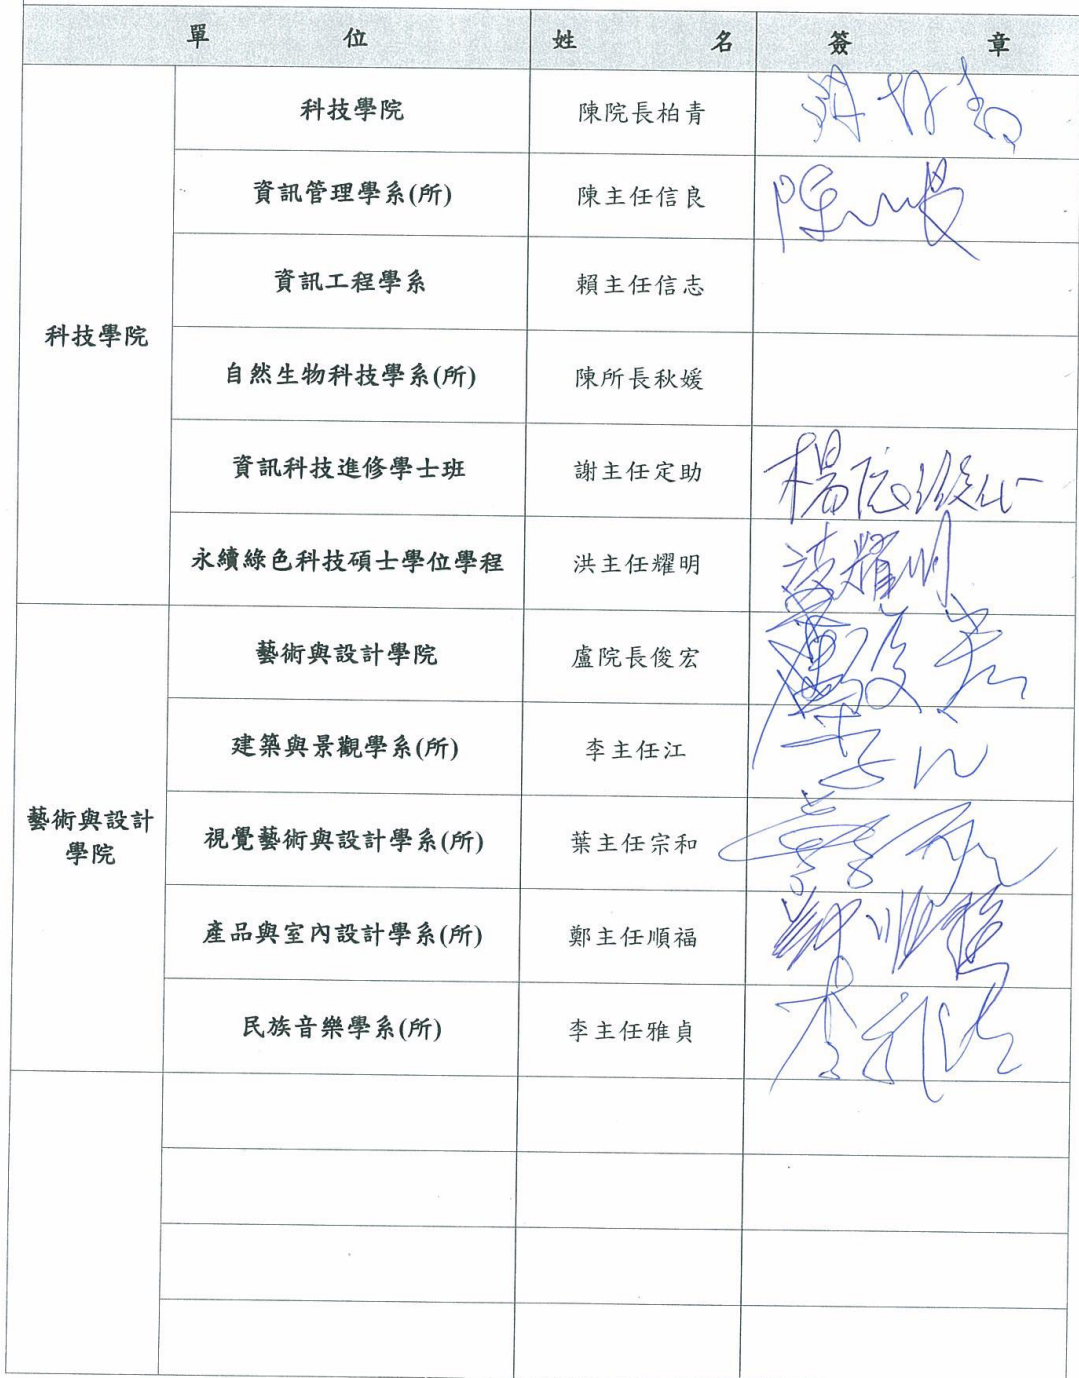 單 位 姓 名 簽 章
科技學院
科技學院 陳院長柏青
資訊管理學系(所) 陳主任信良
資訊工程學系 賴主任信志
自然生物科技學系(所) 陳所長秋媛
資訊科技進修學士班 謝主任定助
永續綠色科技碩士學位學程 洪主任耀明 洪耀明
藝術與設計
學院
藝術與設計學院 盧院長俊宏
建築與景觀學系(所) 李主任江
視覺藝術與設計學系(所) 葉主任宗和
產品與室內設計學系(所) 鄭主任順福
民族音樂學系(所) 李主任雅貞